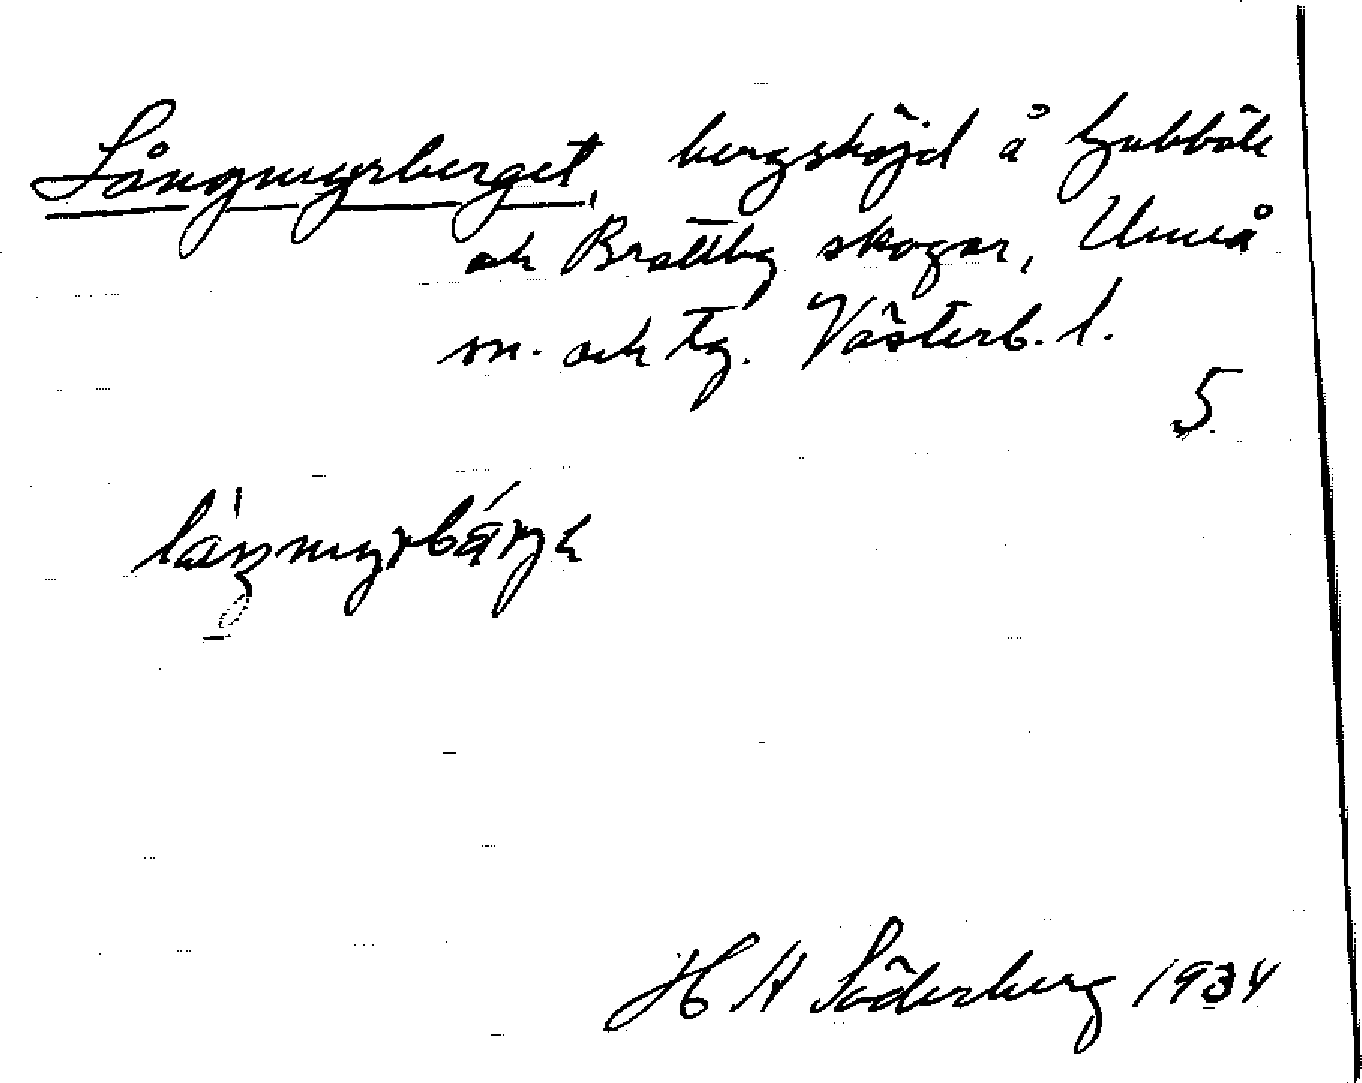 Långmyrberget, bergshöjd å Gubböle
och Brattby skogar, Umeå
sn. och tg. Västerb. l.
5
H A Söderberg 1934